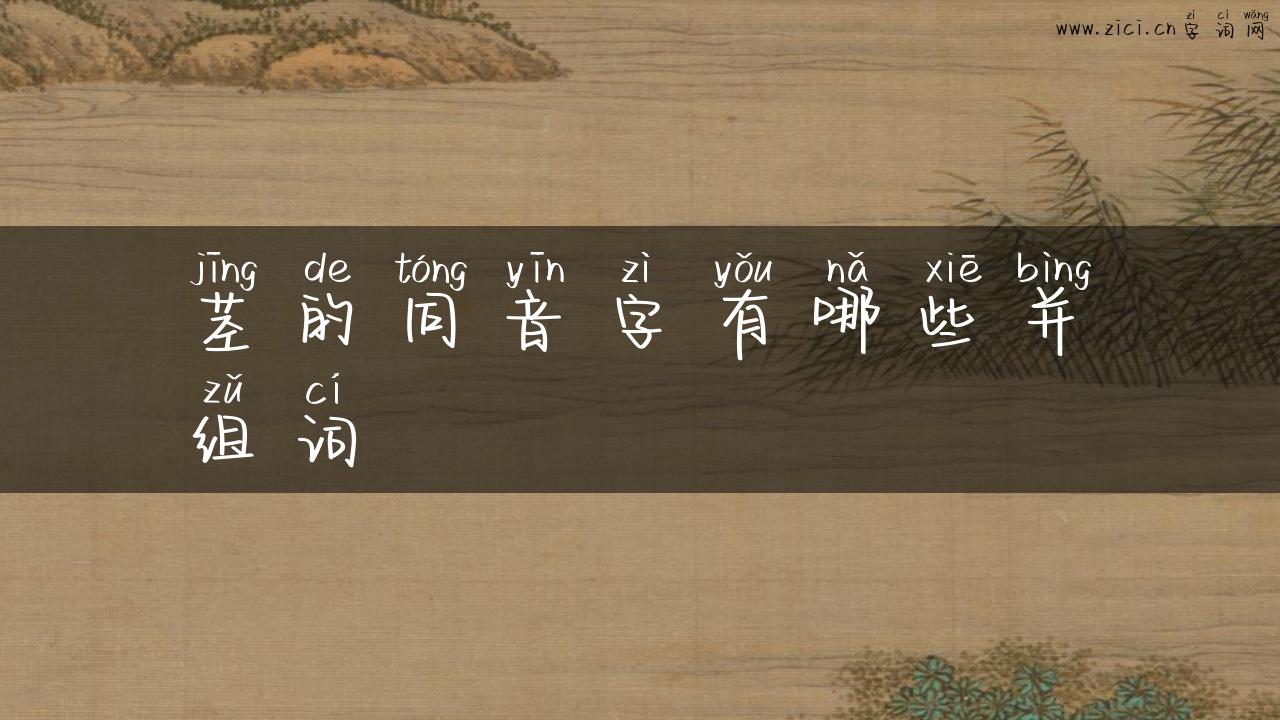 zì cí wǎng
www.zici.cn 字词网
jīng de tóng yīn zì yǒu nǎ xiē bìng
茎的同音字有哪些并
zǔ cí
组词